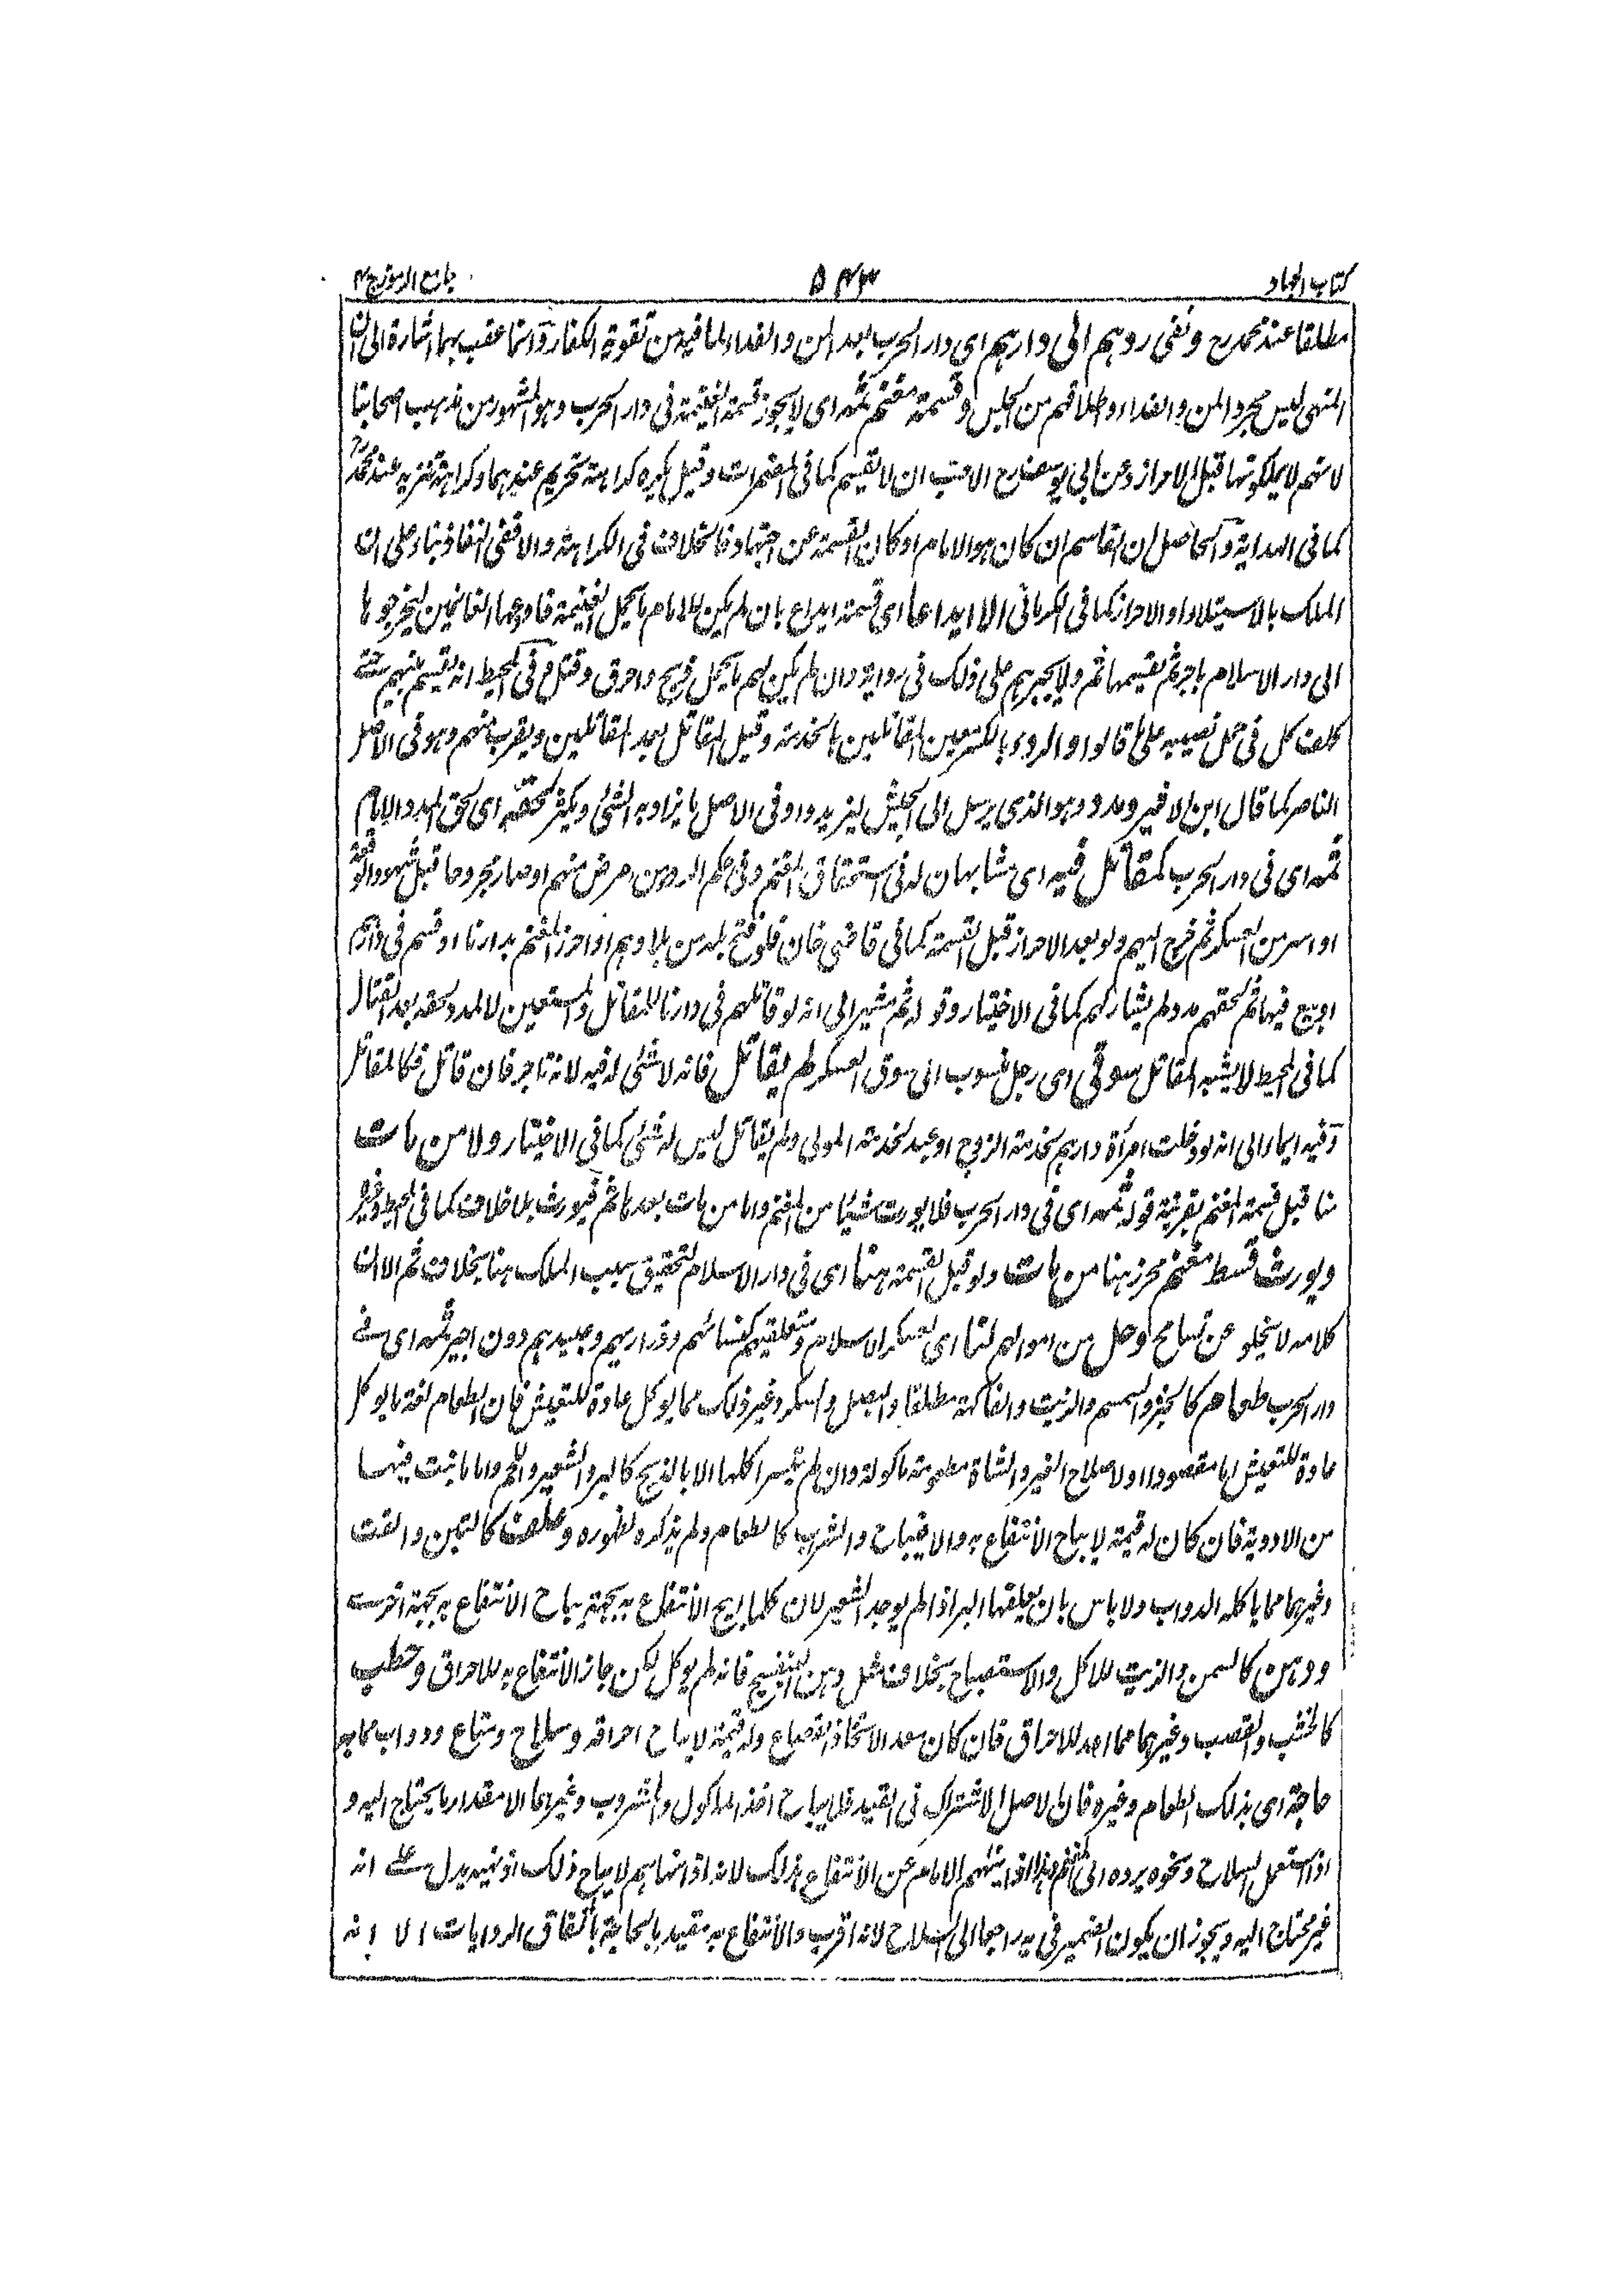 كتاب الجهاد
٥٤٣
جامع الرموز ج ٢
مطلقا عند محمد رح ونفى ردهم الى دارهم اى دار الحرب بعد المن والفداء لما فيه من تقوية الكفار وانما عقب بهما اشارة الى ان
المنهى ليس مجرد المن والفداء واطلاقهم من الحبس وقسمة مغنم ثمه اى لا يجوز قسمة الغنيمة فى دار الحرب وهو المشهور من مذهب اصحابنا
لانهم لا يملكونها قبل الاحراز وعن ابى يوسف رح الاحب ان لا يقسم كما فى المضمرات وقيل يكره كراهة تحريم عندهما وكراهة تنزيه عند محمد رح
كما فى الهداية والحاصل ان القاسم ان كان هو الامام او كان القسمة عن اجتهاد فالخلاف فى الكراهة والا ففى النفاذ بناء على ان
الملك بالاستيلاء او الاحراز كما فى الكرمانى الا ايداعا اى قسمة ايداع بان لم يكن للامام ما يحمل الغنيمة فاودعها الغانمين ليخرجوها
الى دار الاسلام باجر ثم يقسمها ثم ولا يجبرهم على ذلك فى رواية وان لم يكن لهم ما يحمل ذبح واحرق وقتل وفى المحيط انه يقسم بينهم حتے
تكلف كل فى حمل نصيبه على ما قالوا والردء بالكسر معين المقاتلين بالخدمة وقيل المقاتل بعد المقاتلين ويقرب منهم وهو فى الاصل
الناصر كما قال ابن الاثير ومدد وهو الذى يرسل الى الجيش ليزيدوا وفى الاصل ما يزاد به الشئ ويكثر لحقه اى لحق المدد الامام
ثمه اى فى دار الحرب كمقاتل فيه اى مشابهان له فى استحقاق المغنم وفى حكم المدد من مرض منهم او صار مجروحا قبل شهود الوقعة
او اسر من العسكر ثم خرج اليهم ولو بعد الاحراز قبل القسمة كما فى قاضى خان فلو فتح بلد من بلادهم او احرز المغنم بدارنا او قسم فى دارهم
او بيع فيها ثم لحقهم مدد لم يشاركهم كما فى الاختيار وقوله ثم مشير الى انه لو قاتلهم فى دارنا للمقاتل والمستعين لا لمدد لحقه بعد القتال
كما فى المحيط لا يشبه المقاتل سوقى اى رجل منسوب الى سوق العسكر لم يقاتل فانه لا شئ له فيه لانه تاجر فان قاتل فكالمقاتل
وفيه ايماء الى انه لو دخلت امرأة دارهم لخدمة الزوج او عبد لخدمة المولى ولم يقاتل ليس له شئ كما فى الاختيار ولا من مات
منا قبل قسمة المغنم بقرينة قوله ثمه اى فى دار الحرب فلا يورث شيئا من المغنم واما من مات بعدها ثم فيورث بلا خلاف كما فى المحيط وغيره
ويورث قسط مغنم محرز هنا من مات ولو قبل القسمة هنا اى فى دار الاسلام لتحقيق سبب الملك هنا بخلاف ثم الا ان
كلامه لا يخلو عن تسامح وحل من اموالهم لنا اى لعسكر الاسلام ومتعلقيهم كنسائهم وذراريهم وعبيدهم دون اجير ثمه اى فے
دار الحرب طعام كالخبز والسمسم والزيت والفاكهة مطلقا والبصل والسكر وغير ذلك مما يوكل عادة للتعيش فان الطعام لغة ما يوكل
عادة للتعيش اما مقصودا او لاصلاح الغير والشاة مطعومة ماكولة وان لم تيسر اكلها الا بالذبح كالبر والشعير واللحم واما ما نبت فيها
من الادوية فان كان له قيمة لا يباح الانتفاع به والا فيباح والشرب كالطعام ولم يذكره لظهوره وعلف كالتبن والقت
وغيرهما مما ياكله الدواب ولا باس بان يعلفها البر اذا لم يوجد الشعير لان كلما ابيح الانتفاع به بجهة يباح الانتفاع به بجهة اخرے
ودهن كالسمن والزيت للاكل والاستصباح بخلاف مثل دهن البنفسج فانه لم يوكل لكن جاز الانتفاع به للاحراق وحطب
كالخشب والقصب وغيرهما مما اعد للاحراق فان كان معد الاتخاذ القصاع وله قيمة لا يباح احراقه وسلاح ومتاع ودواب مما به
حاجة اى بذلك الطعام وغيره فان الاصل الاشتراك فى القيد فلا يباح اخذ الماكول والمشروب وغيرهما الا مقدار ما يحتاج اليه و
اذا استعمل السلاح ونحوه يرده الى المغنم وهذا اذا لم ينههم الامام عن الانتفاع بذلك لانه اذا نهاهم لا يباح ذلك اذ نهيه يدل علے انه
غير محتاج اليه ويجوز ان يكون الضمير فى به راجعا الى السلاح لانه اقرب والانتفاع به مقيد بالحاجة باتفاق الروايات الا انه